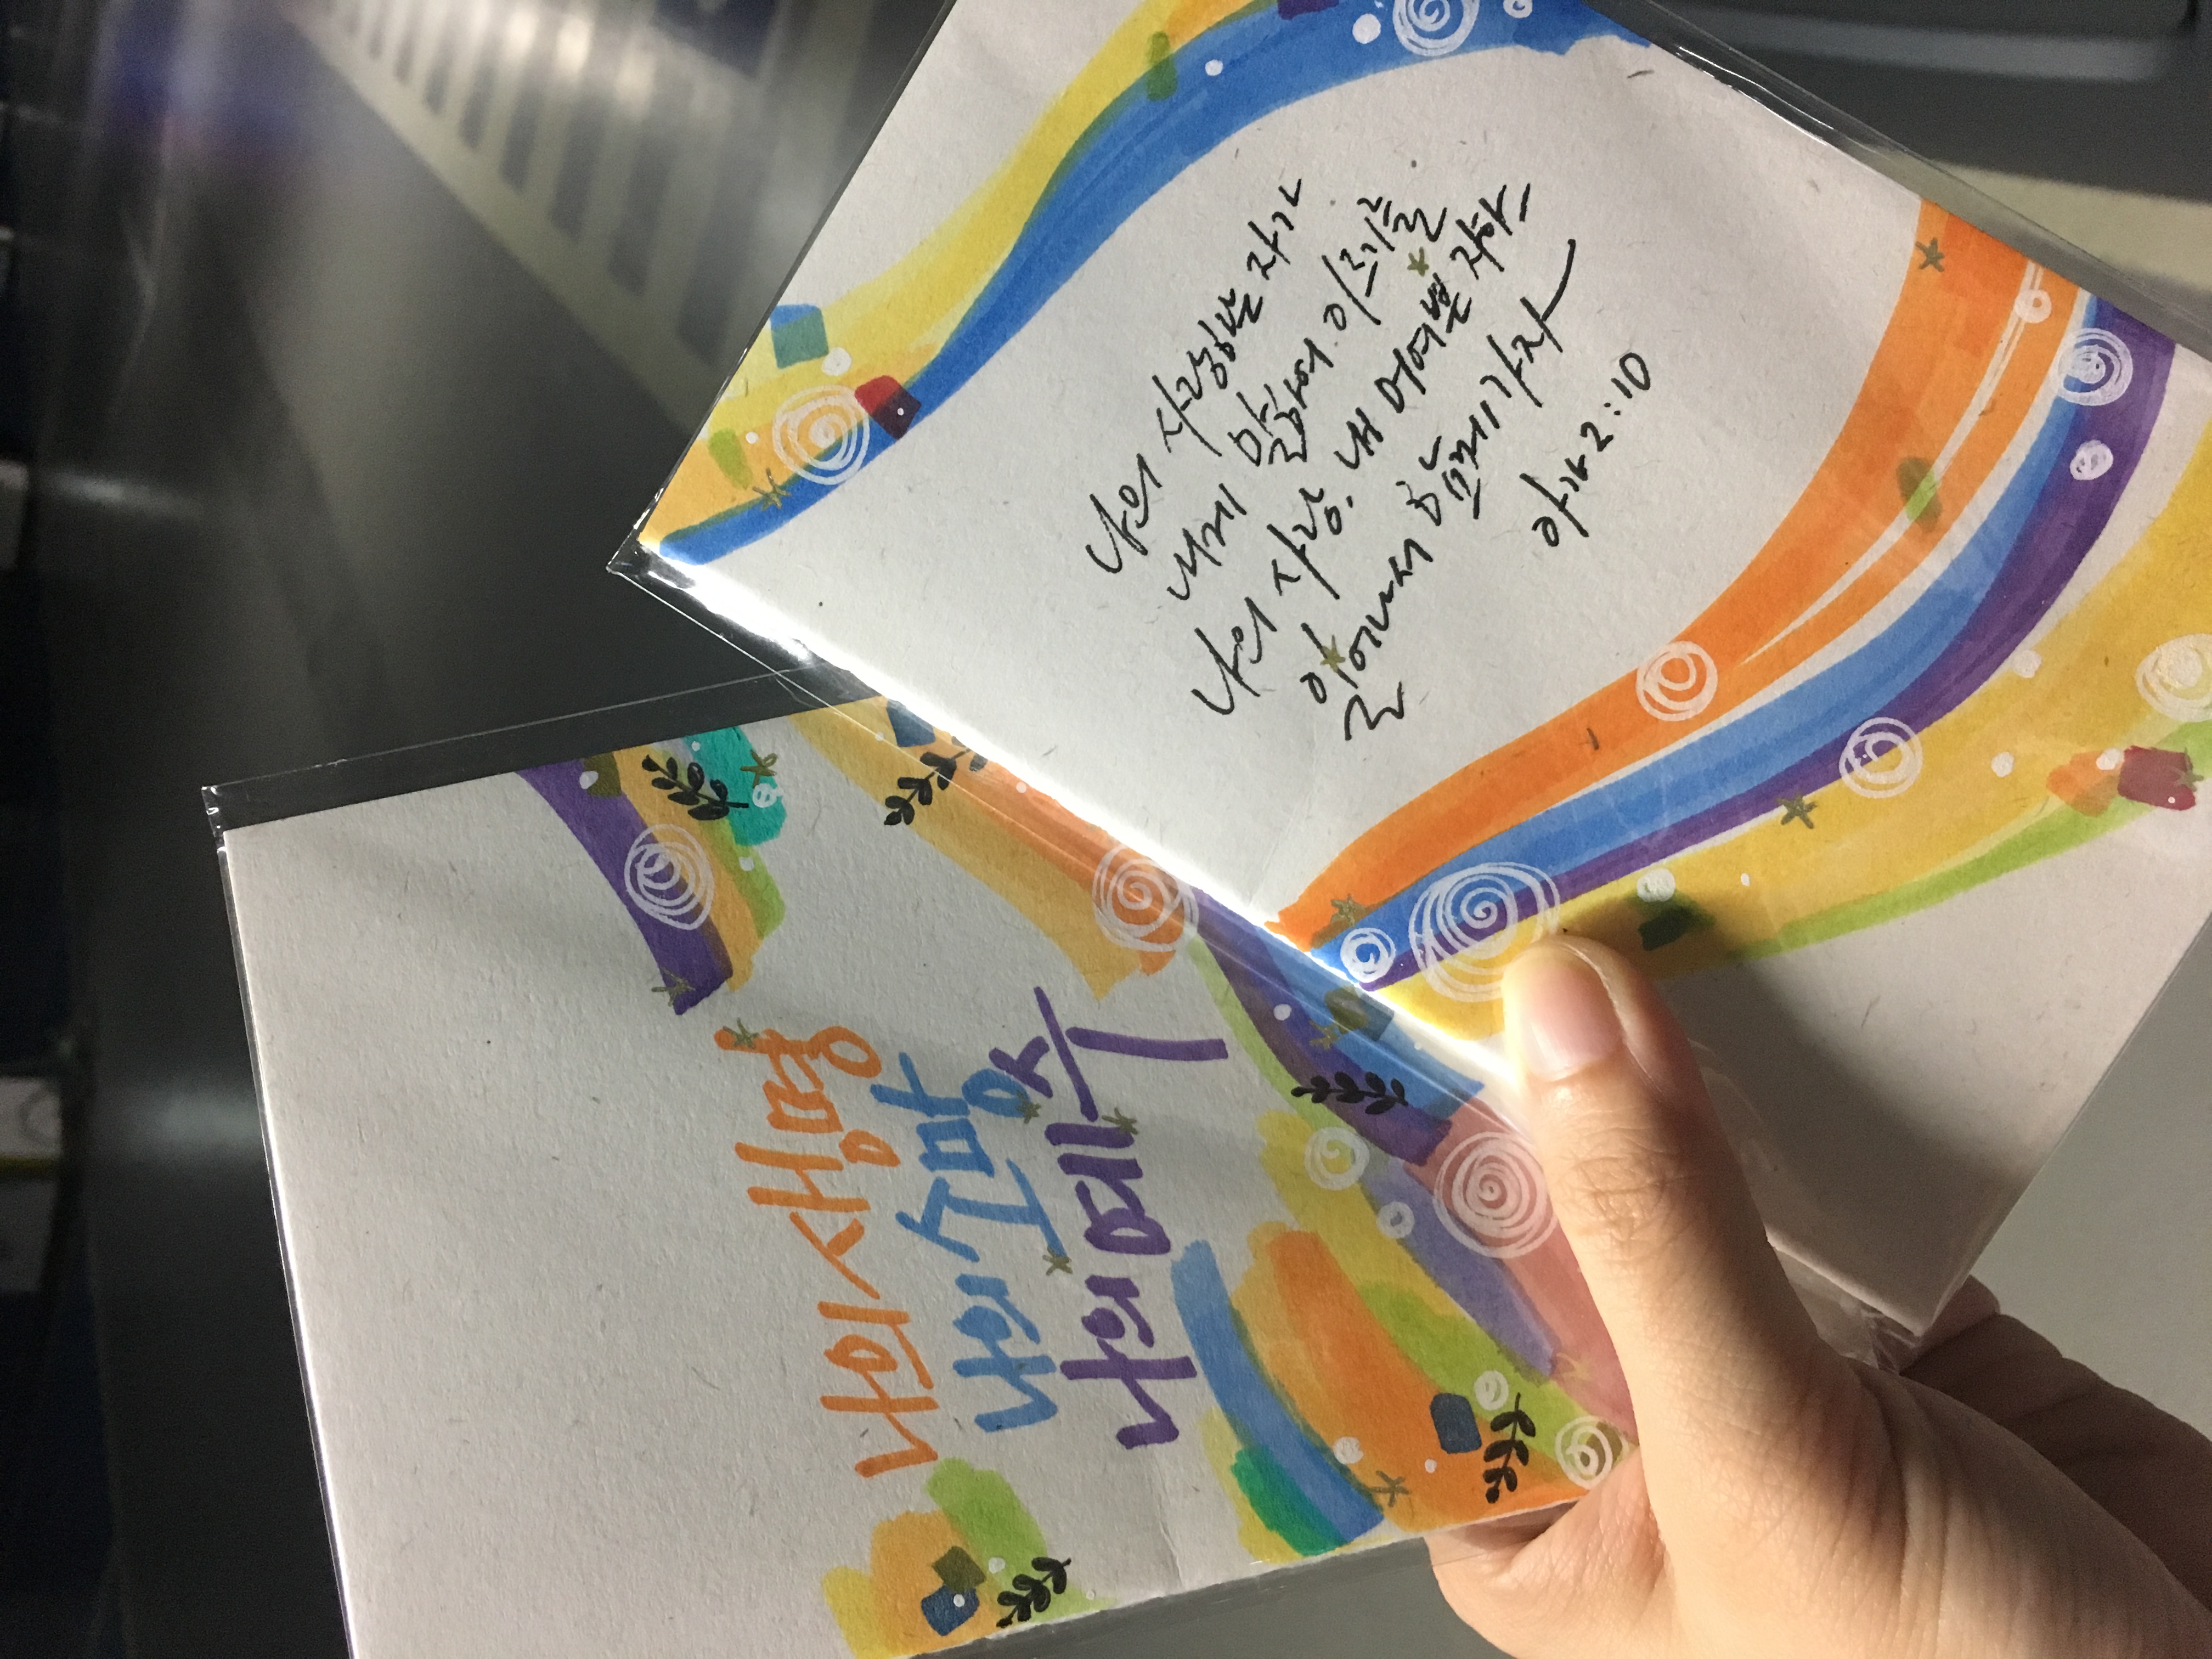 나의 사랑하는 자가
내게 말하여 이르기를
나의 사랑, 내 어여쁜 자야
일어나서 함께 가자
아가 2:10
나의 생명
나의 소망
나의 예수